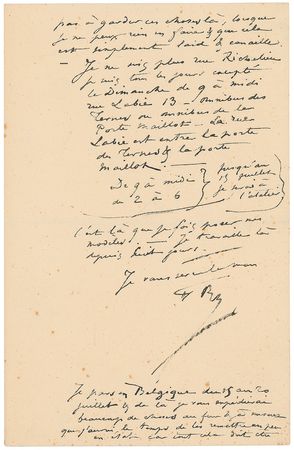 pas à garder ces choses là, lorsque
je ne peux rien en faire & que cela
est simplement laid & canaille.
— Je ne suis plus rue Richelieu
Je suis tous les jours excepté
le Dimanche de 9 à midi
rue Labie 13 — omnibus des
Ternes ou omnibus de la
Porte Maillot — La rue
Labie est entre la porte
des Ternes & la porte
Maillot.
De 9 à midi
de 2 à 6
jusqu'au
15 juillet
je suis à
l'atelier
C'est là que je fais poser mes
modèles. — je travaille là
depuis huit jours.
Je vous serre la main
Je pars en Belgique du 15 au 20
juillet & de là je vous
beaucoup de choses au fur & à mesure
que j'aurai le temps de les remettre un peu
en état car tout cela doit être